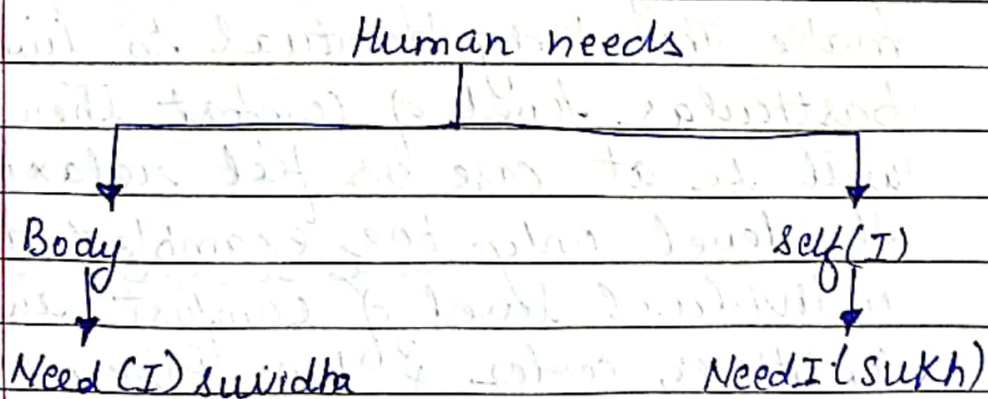 Human needs
Body Self(I)
Need (I) suvidha Need I (Sukh)